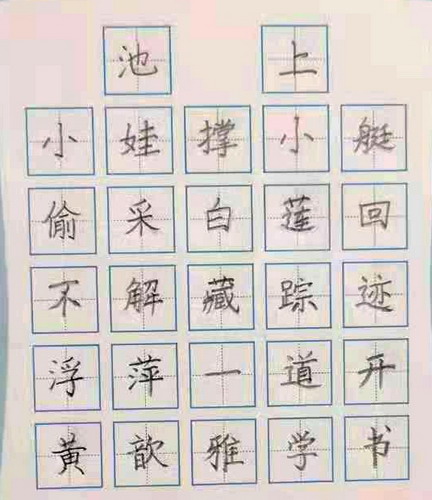 池上
小娃撑小艇
偷采白莲回
不解藏踪迹
浮萍一道开
黄歆雅学书